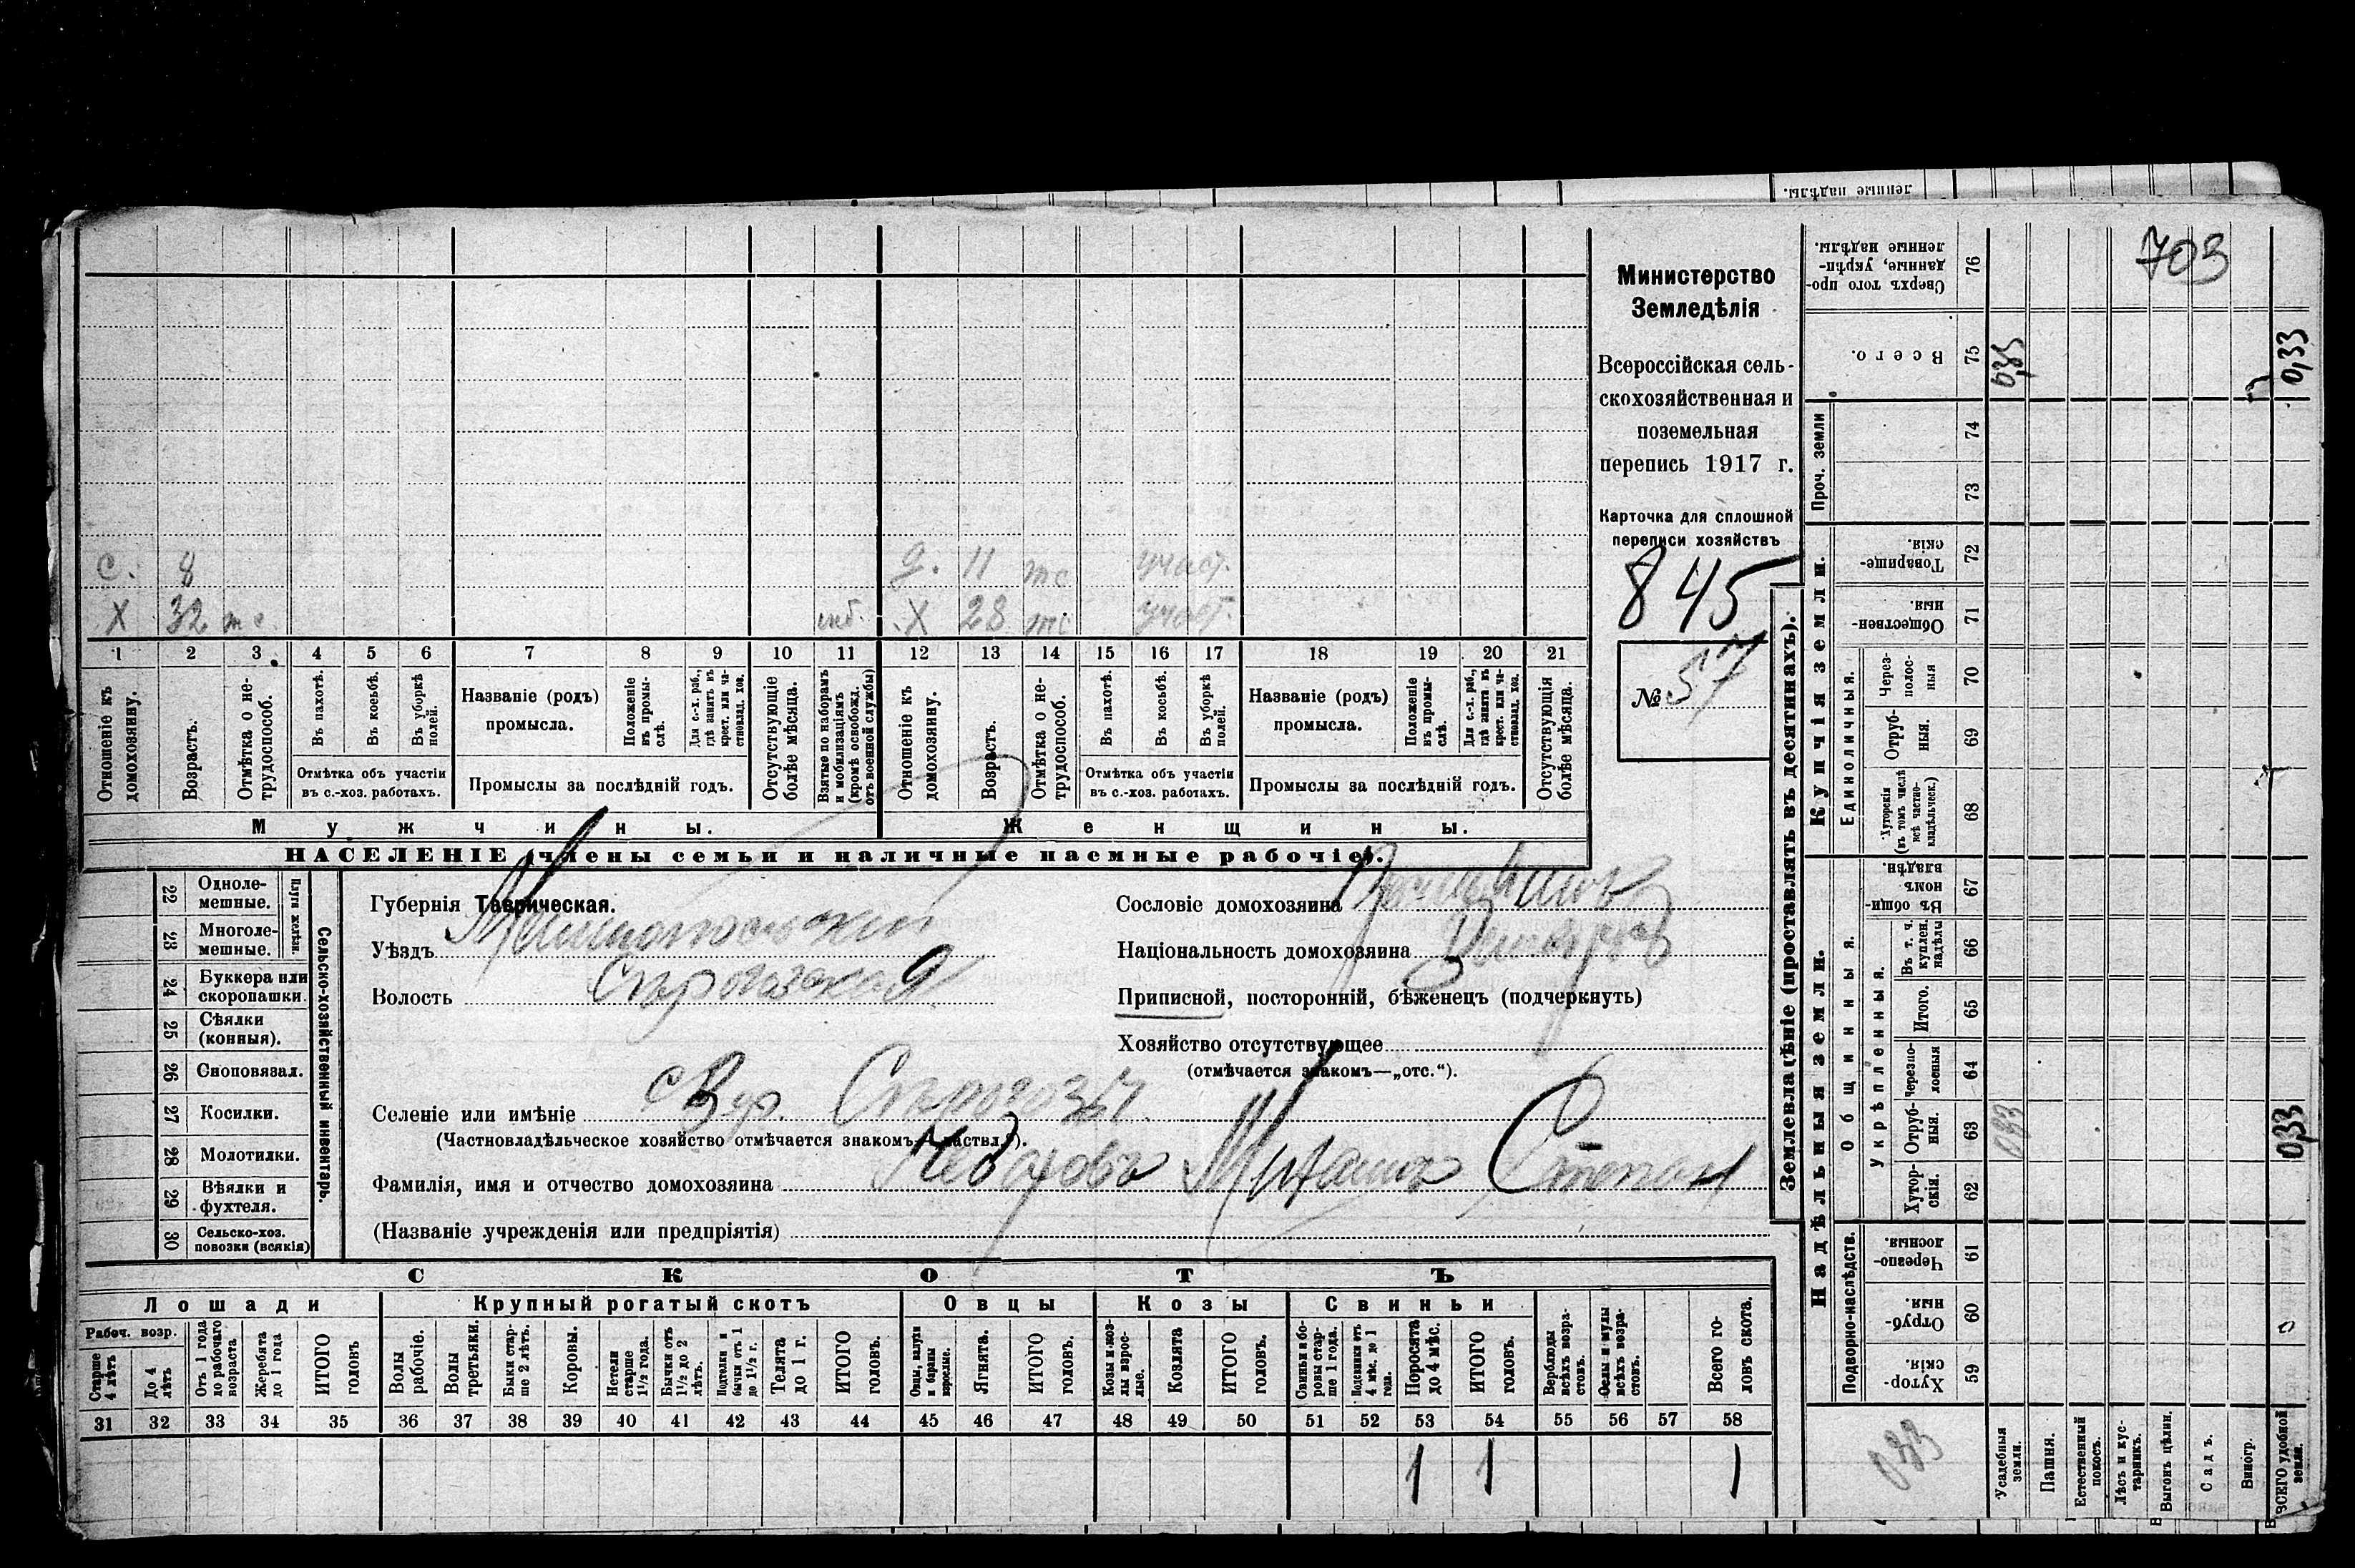 ленные надѣлы.
703
Министерство
Земледѣлія
Всероссійская сель-
скохозяйственная и
поземельная
перепись 1917 г.
Карточка для сплошной
переписи хозяйствъ
845
№ 57
с. 8 д. 11 участ.
X 32 X 28 участ.
1 2 3 4 5 6 7 8 9 10 11 12 13 14 15 16 17 18 19 20 21
Отношеніе къ домохозяину.
Возрастъ.
Отмѣтка о не-трудоспособ.
Въ пахотѣ.
Въ косьбѣ.
Въ уборкѣ полей.
Отмѣтка объ участіи
въ с.-хоз. работахъ.
Названіе (родъ)
промысла.
Положеніе въ промы-слѣ.
Для с.-х. раб., гдѣ занятъ въ крест. или ча-стновлад. хоз.
Промыслы за послѣдній годъ.
Отсутствующіе болѣе мѣсяца.
Взятые по наборамъ и мобилизаціямъ (кромѣ освобожд. отъ военной службы)
Отношеніе къ домохозяину.
Возрастъ.
Отмѣтка о не-трудоспособ.
Въ пахотѣ.
Въ косьбѣ.
Въ уборкѣ полей.
Отмѣтка объ участіи
въ с.-хоз. работахъ.
Названіе (родъ)
промысла.
Положеніе въ промы-слѣ.
Для с.-х. раб., гдѣ занята въ крест. или ча-стновлад. хоз.
Промыслы за послѣдній годъ.
Отсутствующія болѣе мѣсяца.
Мужчины.
Женщины.
НАСЕЛЕНІЕ (члены семьи и наличные наемные рабочіе).
Сельско-хозяйственный инвентарь.
Плуги желѣзн.
22 Одноле-мешные.
23 Многоле-мешные.
24 Буккера или скоропашки.
25 Сѣялки (конныя).
26 Сноповязал.
27 Косилки.
28 Молотилки.
29 Вѣялки и фухтеля.
30 Сельско-хоз. повозки (всякія)
Губернія Таврическая.
Уѣздъ Мелитопольскій
Волость
Селеніе или имѣніе с Вер. Сърогозы
(Частновладѣльческое хозяйство отмѣчается знакомъ—„частвл.“).
Фамилія, имя и отчество домохозяина Степан
(Названіе учрежденія или предпріятія)
Сословіе домохозяина
Національность домохозяина
Приписной, посторонній, бѣженецъ (подчеркнуть)
Хозяйство отсутствующее
(отмѣчается знакомъ—„отс.“).
СКОТЪ
Лошади
Рабоч. возр.
Старше 4 лѣтъ
До 4 лѣтъ
Отъ 1 года до рабочаго возраста
Жеребята до 1 года
ИТОГО головъ
Крупный рогатый скотъ
Волы рабочіе.
Волы третьяки.
Быки стар-ше 2 лѣтъ.
Коровы.
Нетели старше 1½ года.
Бычки отъ 1½ до 2 лѣтъ.
Подтелки и бычки отъ 1 до 1½ г.
Телята до 1 г.
ИТОГО головъ.
Овцы
Овцы, валухи и бараны взрослые.
Ягнята.
ИТОГО головъ.
Козы
Козы и коз-лы взрос-лые.
Козлята
ИТОГО головъ.
Свиньи
Свиньи и бо-ровы стар-ше 1 года.
Подсвинки отъ 4 мѣс. до 1 года.
Поросята до 4 мѣс.
ИТОГО головъ.
Верблюды всѣхъ возра-стовъ.
Ослы и мулы всѣхъ возра-стовъ.
Всего го-ловъ скота.
31 32 33 34 35 36 37 38 39 40 41 42 43 44 45 46 47 48 49 50 51 52 53 54 55 56 57 58
1 1 1
Землевладѣніе (проставлять въ десятинахъ).
Купчія земли.
Надѣльныя земли.
Сверхъ того про-данные, укрѣп-ленные надѣлы. 76
Всего. 75 0,33 0,33
Проч. земли
74
73
Товарище-скія. 72
Обществен-ныя. 71
Единоличныя.
Черезполос-ныя 70
Отруб-ныя. 69
Хуторскія (въ томъ числѣ всѣ частно-владѣльческ.) 68
Общинныя.
Въ общи-номъ владѣн. 67
Укрѣпленныя.
Въ т. ч. куплен. надѣлы 66
Итого. 65
Черезпо-лосныя 64
Отруб-ныя. 63 0,33 0,33
Хутор-скія. 62
Подворно-наслѣдств.
Черезпо-лосныя 61
Отруб-ныя. 60
Хутор-скія. 59
033
Усадебныя земли.
Пашня.
Естественный покосъ.
Лѣсъ и кус-тарникъ.
Выгонъ цѣлин.
Садъ.
Виногр.
ВСЕГО удобной земли.